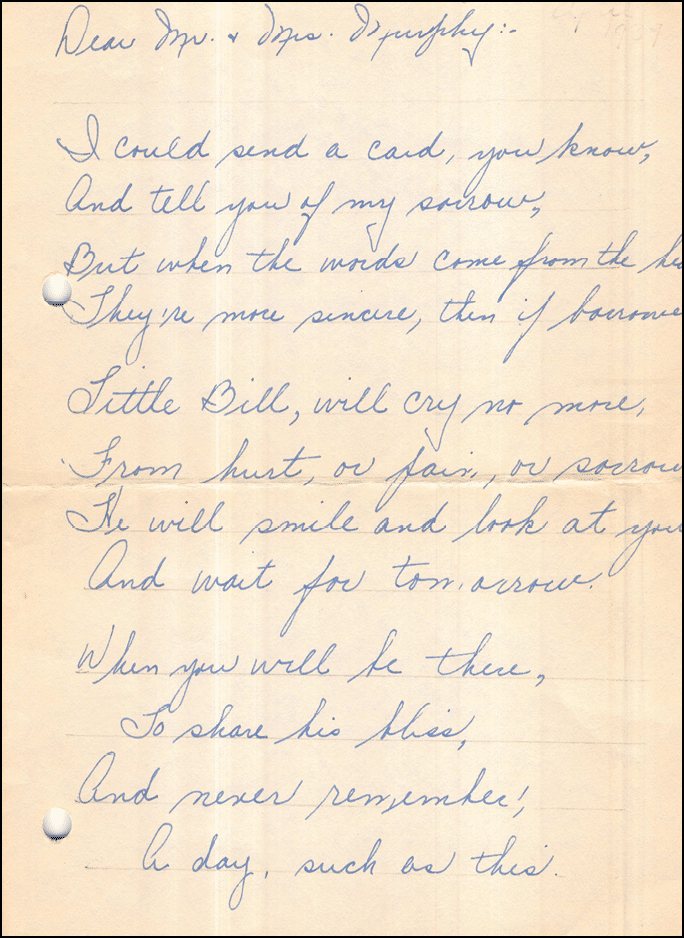 Dear Mr. & Mrs. Murphy:-
I could send a card, you know,
And tell you of my sorrow,
But when the words come from the
They're more sincere, then if
Little Bill, will cry no more,
From hurt, or pain, or sorrow
He will smile and look at you
And wait for tomorrow.
When you will be there,
To share his bliss,
And never remember!,
A day, such as this.